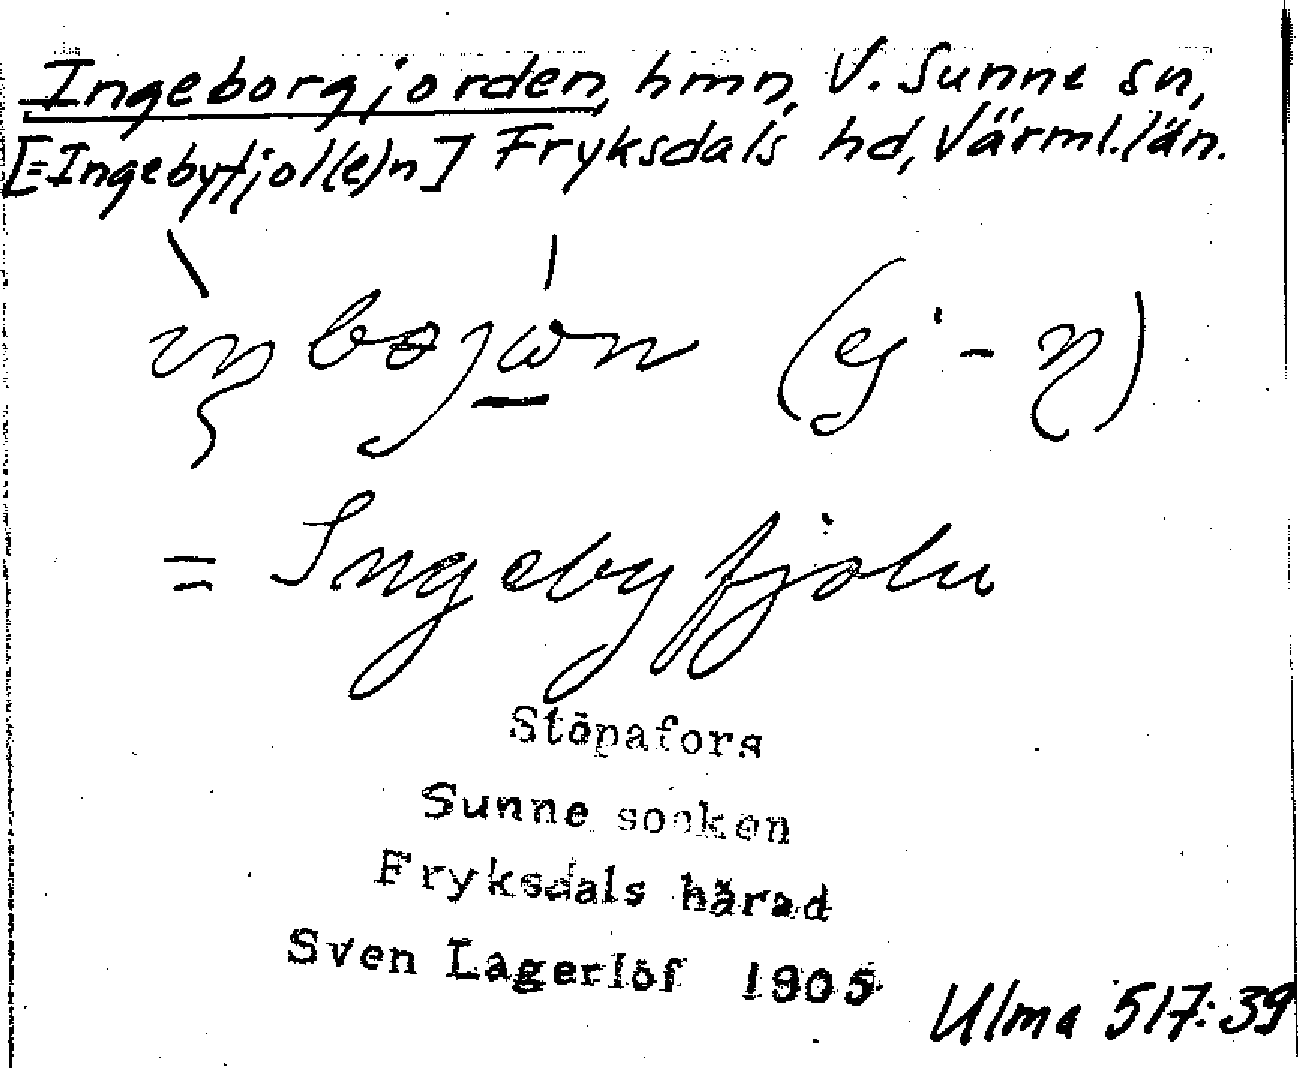 Ingeborgjorden, hmn, V. Sunne sn,
[=Ingebyfjol(e)n] Fryksdals hd, Värml. län.
(ej -n)
= Ingebyfjoln
Stöpafors
Sunne socken
Fryksdals härad
Sven Lagerlöf 1905
Ulma 517:39